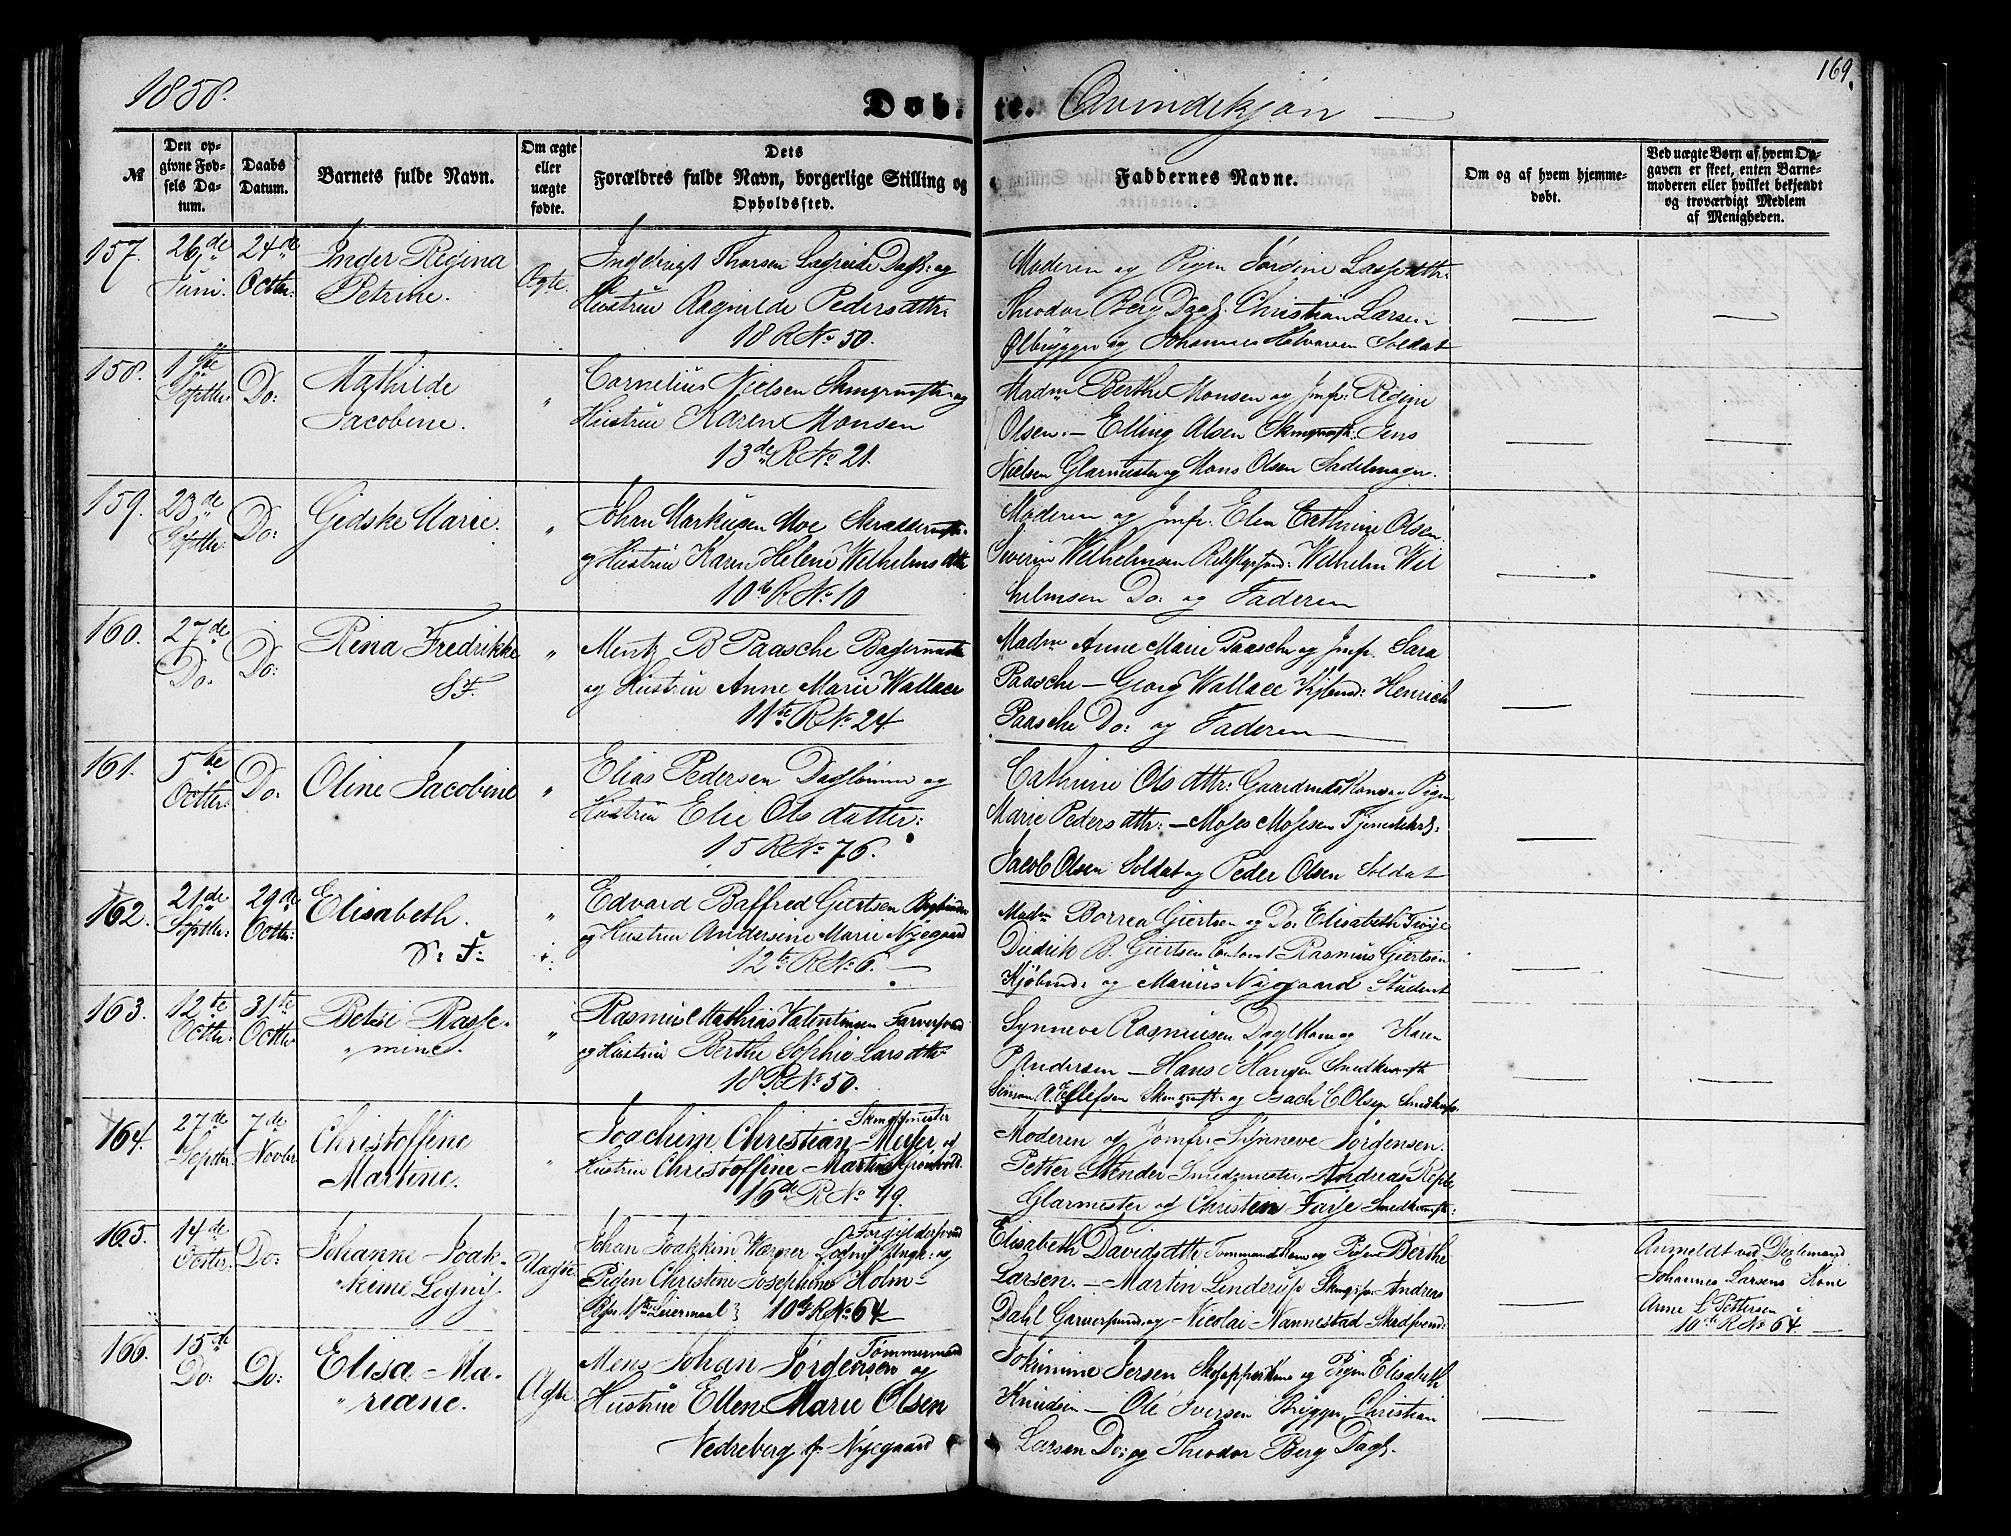 1858.
169.
Døbte. Qvindekjøn
№
Den opgivne Fødsels Datum.
Daabs Datum.
Barnets fulde Navn.
Om ægte eller uægte fødte.
Dets Forældres fulde Navn, borgerlige Stilling og Opholdssted.
Faddernes Navne.
Om og af hvem hjemmedøbt.
Ved uægte Børn af hvem Opgaven er skeet, enten Barnemoderen eller hvilket bekjendt og troværdigt Medlem af Menigheden.
157. 26de Juni. 24de Octbr:
Inger Regina
Petrine.
Ægte.
Ingebrigt Thorsen Dagl: og
Hustrue Ragnilde Pedersdttr:
18 R No 50.
Moderen og Pigen Jördine Lassedttr:
Theodor Berg Dagl. Christian Larsen
Ølbrygger og Johannes Halvorsen Soldat
158. Septbr: Do:
Mathilde
Jacobine.
"
Cornelius Nielsen og
Hustrue Karen Monsen
13de R No 21.
Madm Berthe Monsen og Jmfr: Regine
Olsen. – Elling Olsen Jens
Nielsen Glarmester og Mons Olsen Sadelmager.
159. 23de Septbr: Do:
Gidske Marie.
"
Johan Markusen Moe
og Hustrue Karen Helene Wilhelmsdttr
10de R No 10
Moderen og Jmfr. Elen Cathrine Olsen.
Severin Wilhelmsen Wilhelm Wil
helmsen Do: og Faderen
160. 27de Do. Do:
Rina Fredrikke
S F.
"
Mentz B Paasche Bagermester
og Hustrue Anne Marie Wallace
11te R No 24.
Madm Anne Marie Paasche og Jmfr. Sara
Paasche – Georg Wallace Kjbmd: Henrich
Paasche Do: og Faderen
161. 5te Octbr: Do:
Oline Jacobine
"
Elias Pedersen og
Hustrue Elie Olsdatter:
15 R No 76.
Cathrine Olsdttr: Gaardmds Kone og Pigen
Marie Pedersdttr: – Moses Mosesen
Jacob Olsen Soldat og Peder Olsen Soldat
162. 21de Septbr: 29de Octbr:
Elisabeth.
S: F:
"
Edvard Gjertsen Bogbinder
og Hustrue Andersine Marie Nygaard
12te R No 6.
Madm Borrea Giertsen og Do: Elisabeth
Didrik B. Giertsen Rasmus Giertsen
Kjøbmd: og Marius Nygaard Student
163. 12te Octbr: 31te Octbr:
Betsi Rasse-
"mine.
"
Rasmus Mathias Valentinsen Farversvend
og Hustrue Berthe Sophie Larsdttr
18 R No 50.
Synneve Rasmusen Dagl Kone og Karen
P Andersen – Hans Hansen Snedkermstr
Simon A. Ellefsen og Isach E Olsen
164. 27de Septbr. 7de Novbr
Christoffine
Martine.
"
Joachim Christian Meyer, og
Hustrue Christoffine Martine
16de R No 49.
Moderen og Jomfr: Synneve Jørgensen.
Petter Stender Smedemester, Andreas
Glarmester og Christen Faye
165. 14de Octbr. Do:
Johanne Joak-
"kime
Uægte
Johan Joakkim Werner Ungk: og
Pigen Christine Josephine Holm
1te Leiermaal 10de R No 64
Elisabeth Davidsdttr Tommermds Kone og Pigen Berthe
Larsen. – Martin Linderup Andreas
Dahl Garversvend, og Nicolai Nannestad
Anmeldt ved
Johannes Larsens Kone
Anne L Pettersen
10de R No 64.
166. 15de Do: Do:
Elisa Ma-
"riane.
Ægte
Tømmermand
Mons Johan Jørgensen og
Hustrue Ellen Marie Olsen
Nedreberg p. Nygaard
Jokumine Jersen og Pigen Elisabeth
Knudsen – Ole Iversen Brygger, Christian
Larsen Do: og Theodor Berg Dagl.